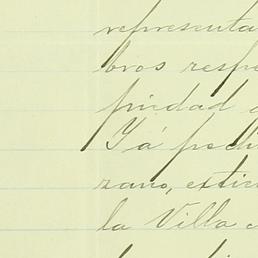 representa
bros respe
piedad a
Yá pedi
zano, extie
la Villa